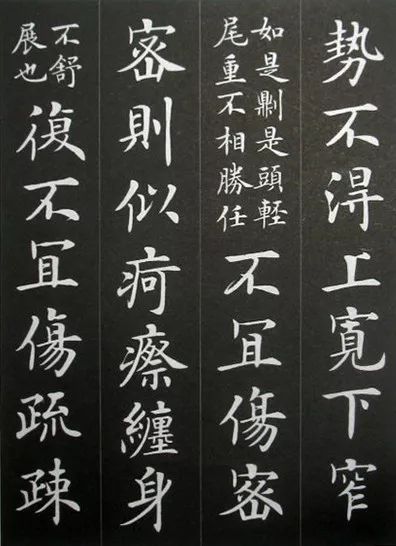 勢不淂上寬下窄
如是則是頭輕
尾重不相勝任
不冝傷宻
宻則似疴瘵纏身
不舒
展也
復不冝傷疏疎